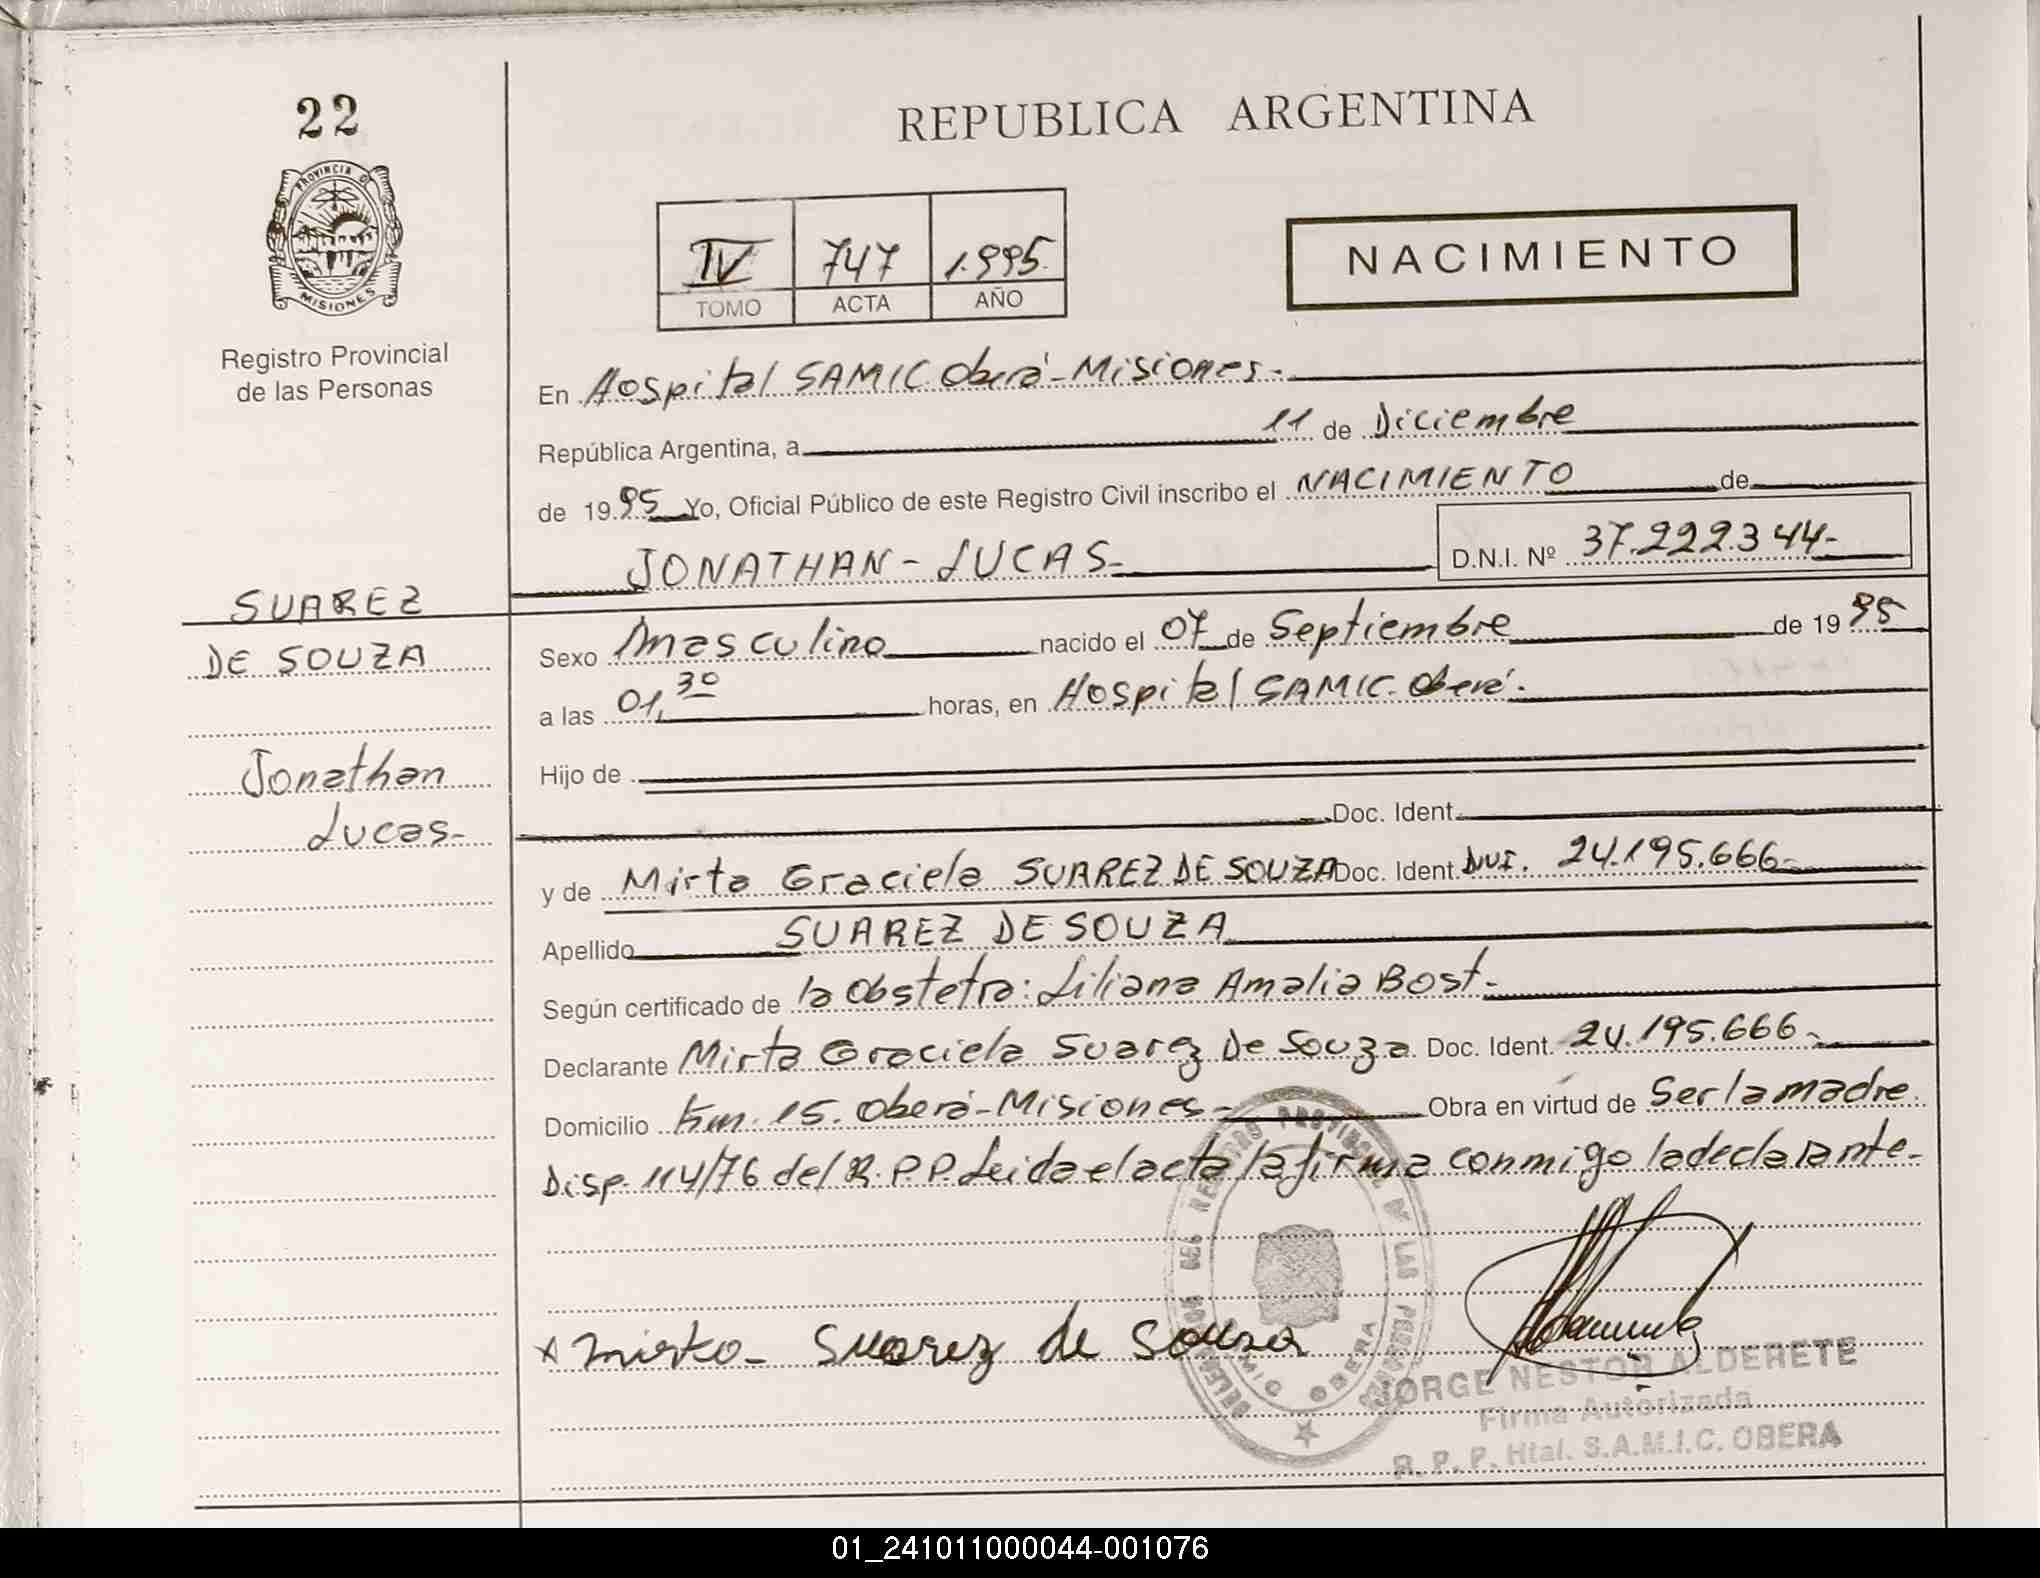 22
REPUBLICA ARGENTINA
PROVINCIA D
MISIONES
Registro Provincial
de las Personas
IV 747 1.995.
TOMO ACTA AÑO
NACIMIENTO
En Hospital SAMIC. Oberá-Misiones.-
República Argentina, a 11 de Diciembre
de 1995 Yo, Oficial Público de este Registro Civil inscribo el NACIMIENTO de
JONATHAN - LUCAS- D.N.I. Nº 37.222.344-
SUAREZ
DE SOUZA
Jonathan
Lucas-
Sexo Masculino nacido el 07 de Septiembre de 1995
a las 01,30 horas, en Hospital SAMIC. Oberá.-
Hijo de
Doc. Ident.
y de Mirta Graciela SUAREZ DE SOUZA Doc. Ident. DNI. 24.195.666-
Apellido SUAREZ DE SOUZA
Según certificado de la Obstetra: Liliana Amalia Bost.-
Declarante Mirta Graciela Suarez De Souza. Doc. Ident. 24.195.666.-
Domicilio Km. 15. Oberá-Misiones- Obra en virtud de Ser la madre.
Disp. 114/76 del R.P.P. Leida el acta la firma conmigo la declarante-
x mirta- Suarez de Souza
DEL REGISTRO PROVINCIAL DE LAS PERSONAS
OBERA
JORGE NESTOR ALDERETE
Firma Autorizada
R. P. P. Htal. S.A.M.I.C. OBERA
01_241011000044-001076